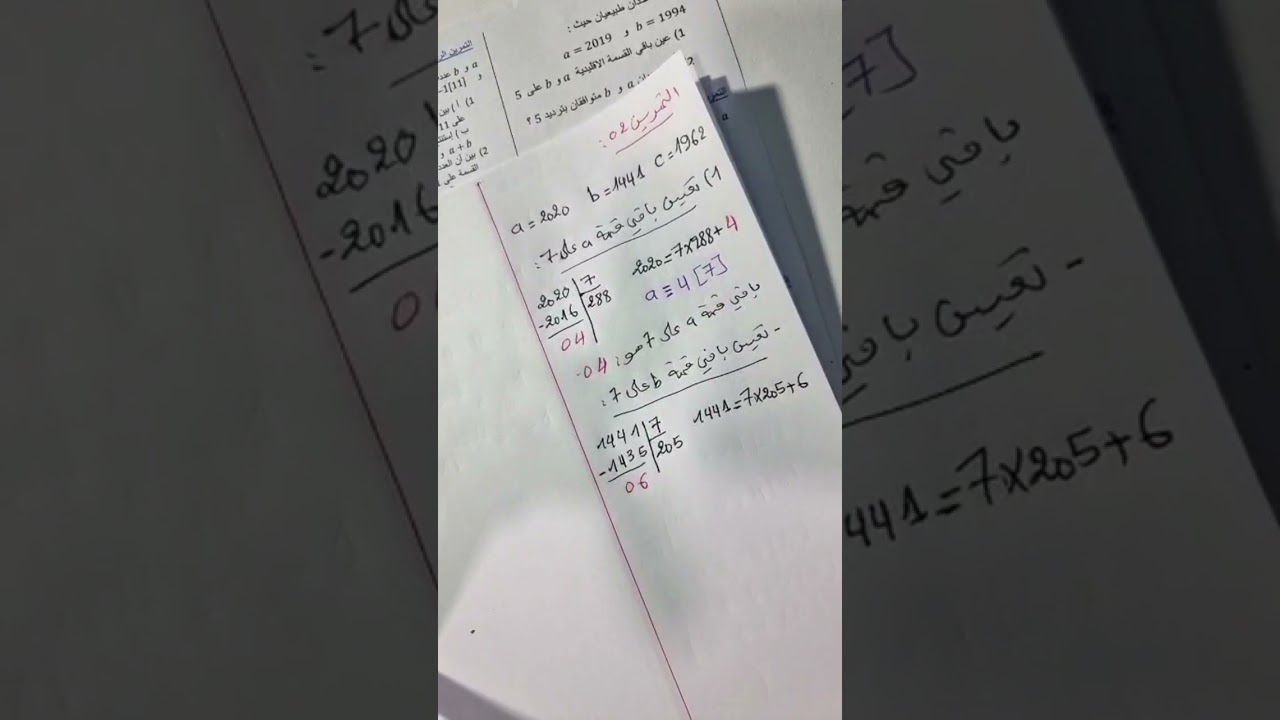 عددان طبيعيان حيث :
a = 2019 و b = 1994
1) عين باقي القسمة الاقليدية a و b على 5
a و b متوافقان بترديد 5 ؟
التمرين 02:
a = 2020 b = 1441 c = 1962
1) تعيين باقي قسمة a على 7:
2020 | 7
-2016 | 288
04
2020 = 7×288+4
a ≡ 4 [7]
باقي قسمة a على 7 هو: 04.
- تعيين باقي قسمة b على 7:
1441 | 7
-1435 | 205
06
1441 = 7×205+6